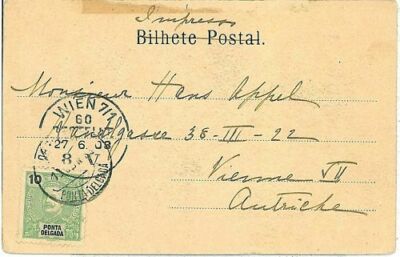 Impresso
Bilhete Postal.
Monsieur Hans Appel
38-III-22
Vienne
Autriche
WIEN 7/1
60
27 6 08
8 V
10
PONTA DELGADA
PONTA
DELGADA